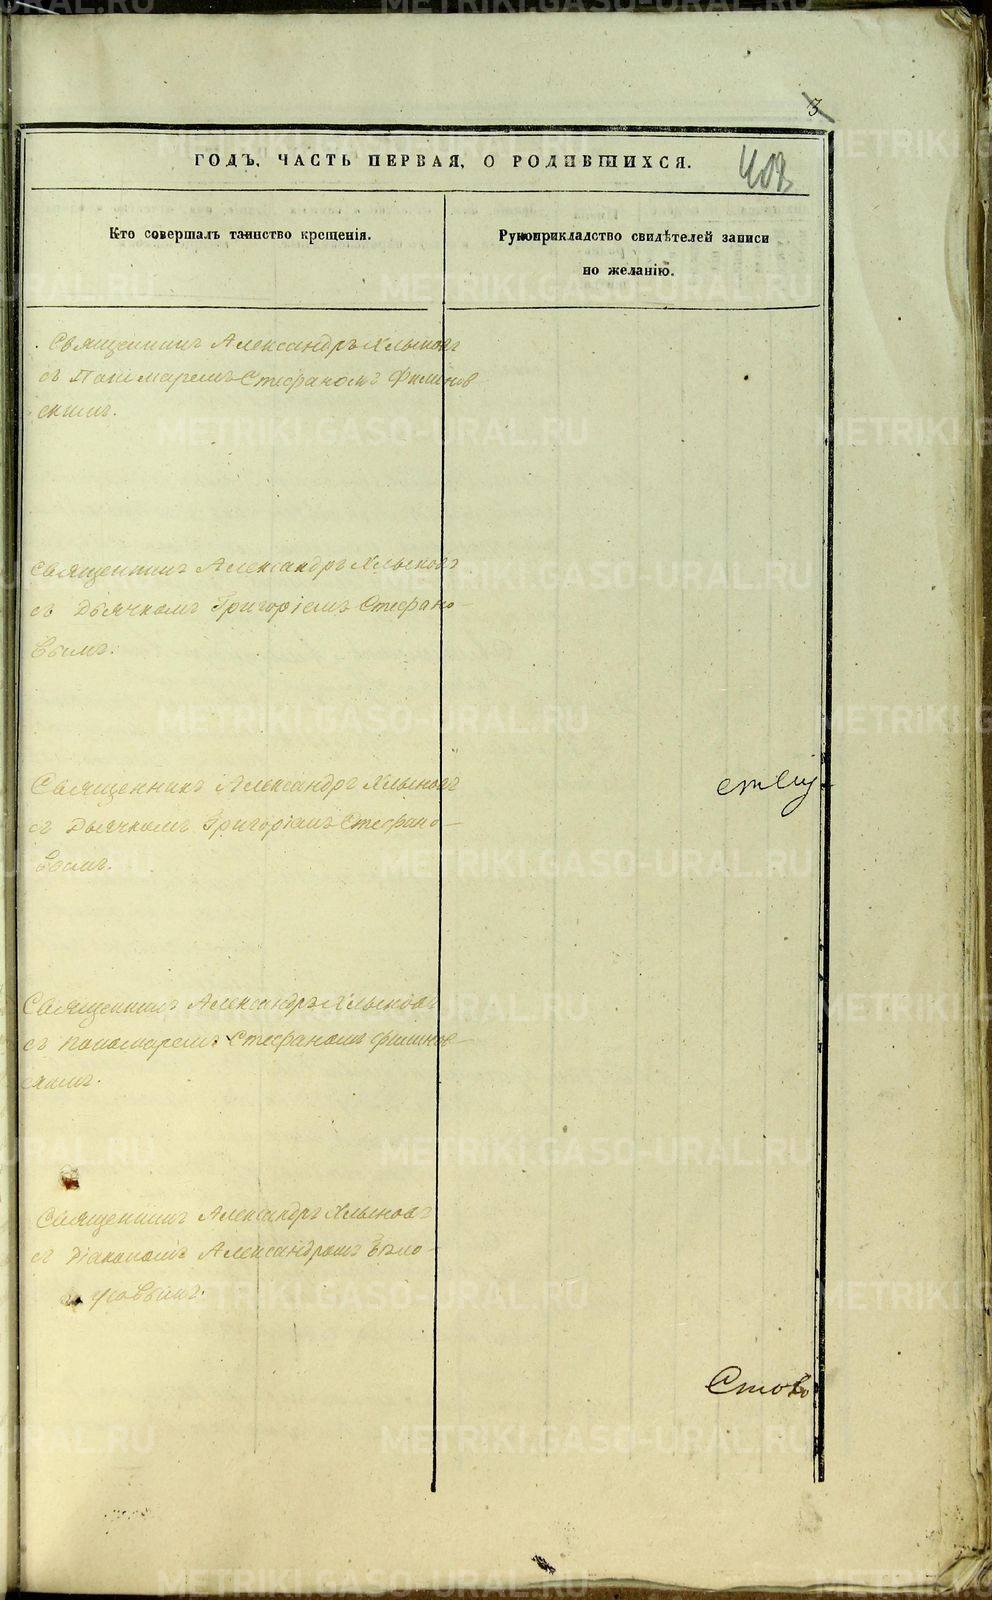 3
ГОДЪ, ЧАСТЬ ПЕРВАЯ, О РОДИВШИХСЯ.
408
Кто совершалъ таинство крещенія.
Рукоприкладство свидѣтелей записи
по желанію.
Священникъ Александръ Хлыновъ
съ Пономаремъ Стефаномъ Филинов
скимъ.
Священникъ Александръ Хлыновъ
съ Дьячкомъ Григоріемъ Стефано-
вымъ.
Священникъ Александръ Хлыновъ
съ Дьячкомъ Григоріемъ Стефано-
вымъ.
Священникъ Александръ Хлыновъ
съ Пономаремъ Стефаномъ Филинов-
скимъ.
Священникъ Александръ Хлыновъ
съ Діакономъ Александромъ Бѣло-
усовымъ.
Стово
METRIKI.GASO-URAL.RU